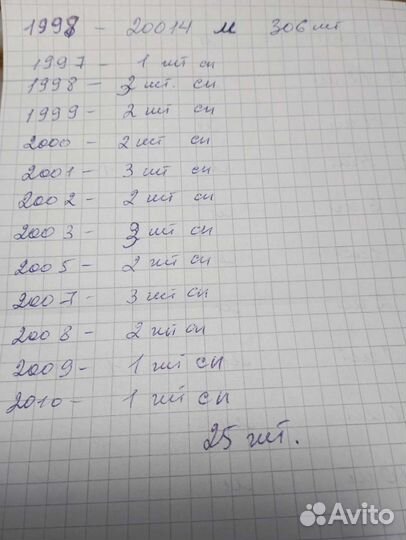 1998 - 20014 м 306 шт
1997 - 1 шт сп
1998 - 3 шт. сп
1999 - 2 шт сп
2000 - 2 шт сп
2001 - 3 шт сп
2002 - 2 шт сп
2003 - 3 шт сп
2005 - 2 шт сп
2007 - 3 шт сп
2008 - 2 шт сп
2009 - 1 шт сп
2010 - 1 шт сп
25 шт.
Avito